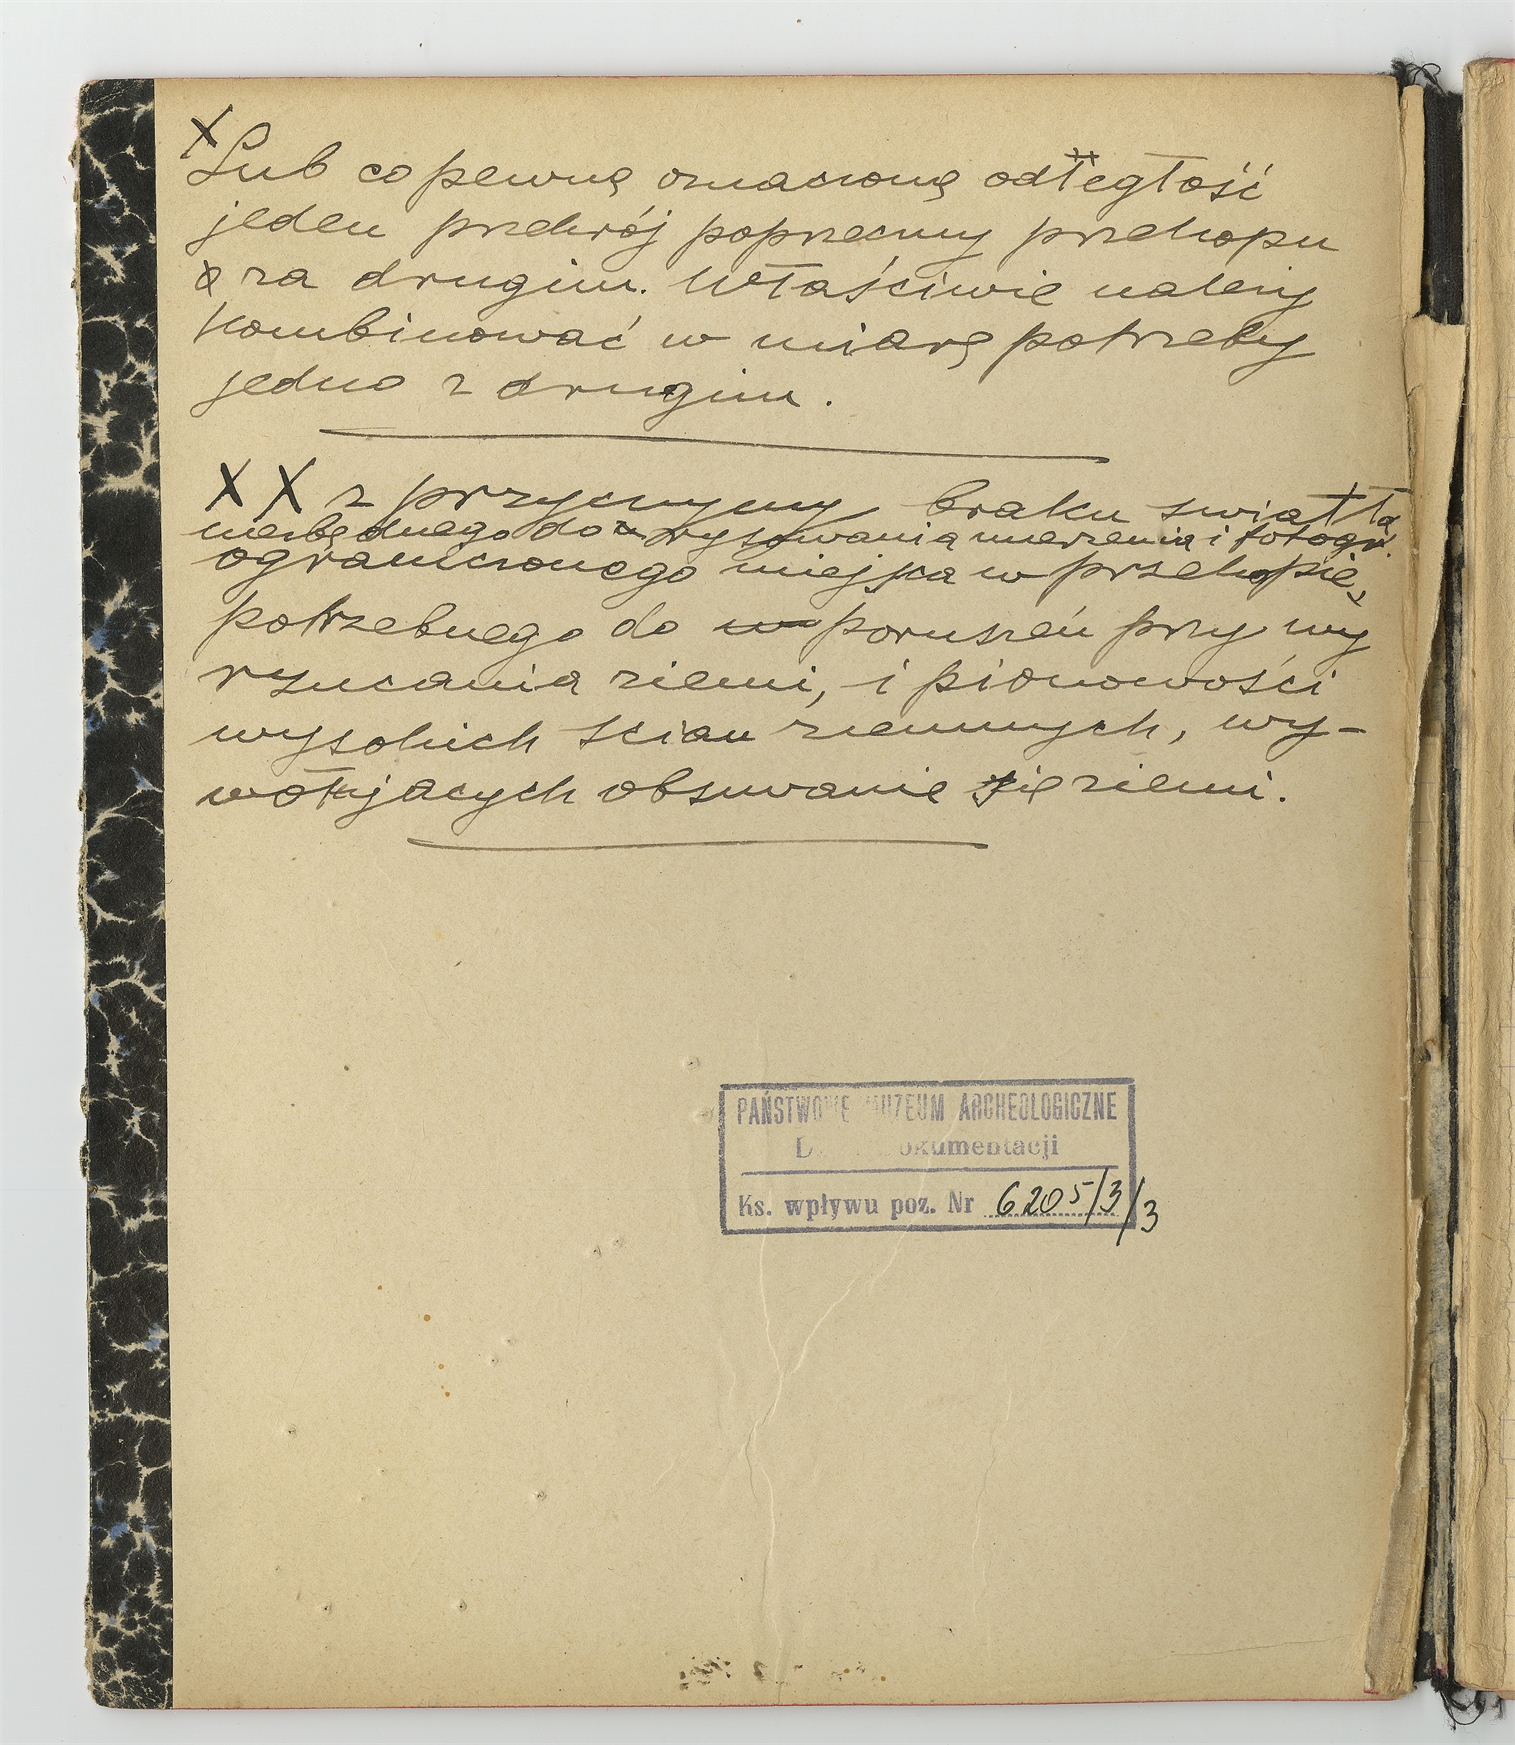 X
Lub co pewną oznaczoną odległość
jeden przekrój poprzeczny przekopu
za drugim. Właściwie należy
kombinować w miarę potrzeby
jedno z drugim.
XX z przyczyny braku swiatła
niezbędnego do rysowania mierzenia i fotogr.
ograniczonego miejsca w przekopie,
potrzebnego do poruszeń przy wy
rzucania ziemi, i pionowości
wysokich scian ziemnych, wy-
wołujacych obsuwanie się ziemi.
PAŃSTWOWE MUZEUM ARCHEOLOGICZNE
Dział Dokumentacji
Ks. wpływu poz. Nr 6205/3/3